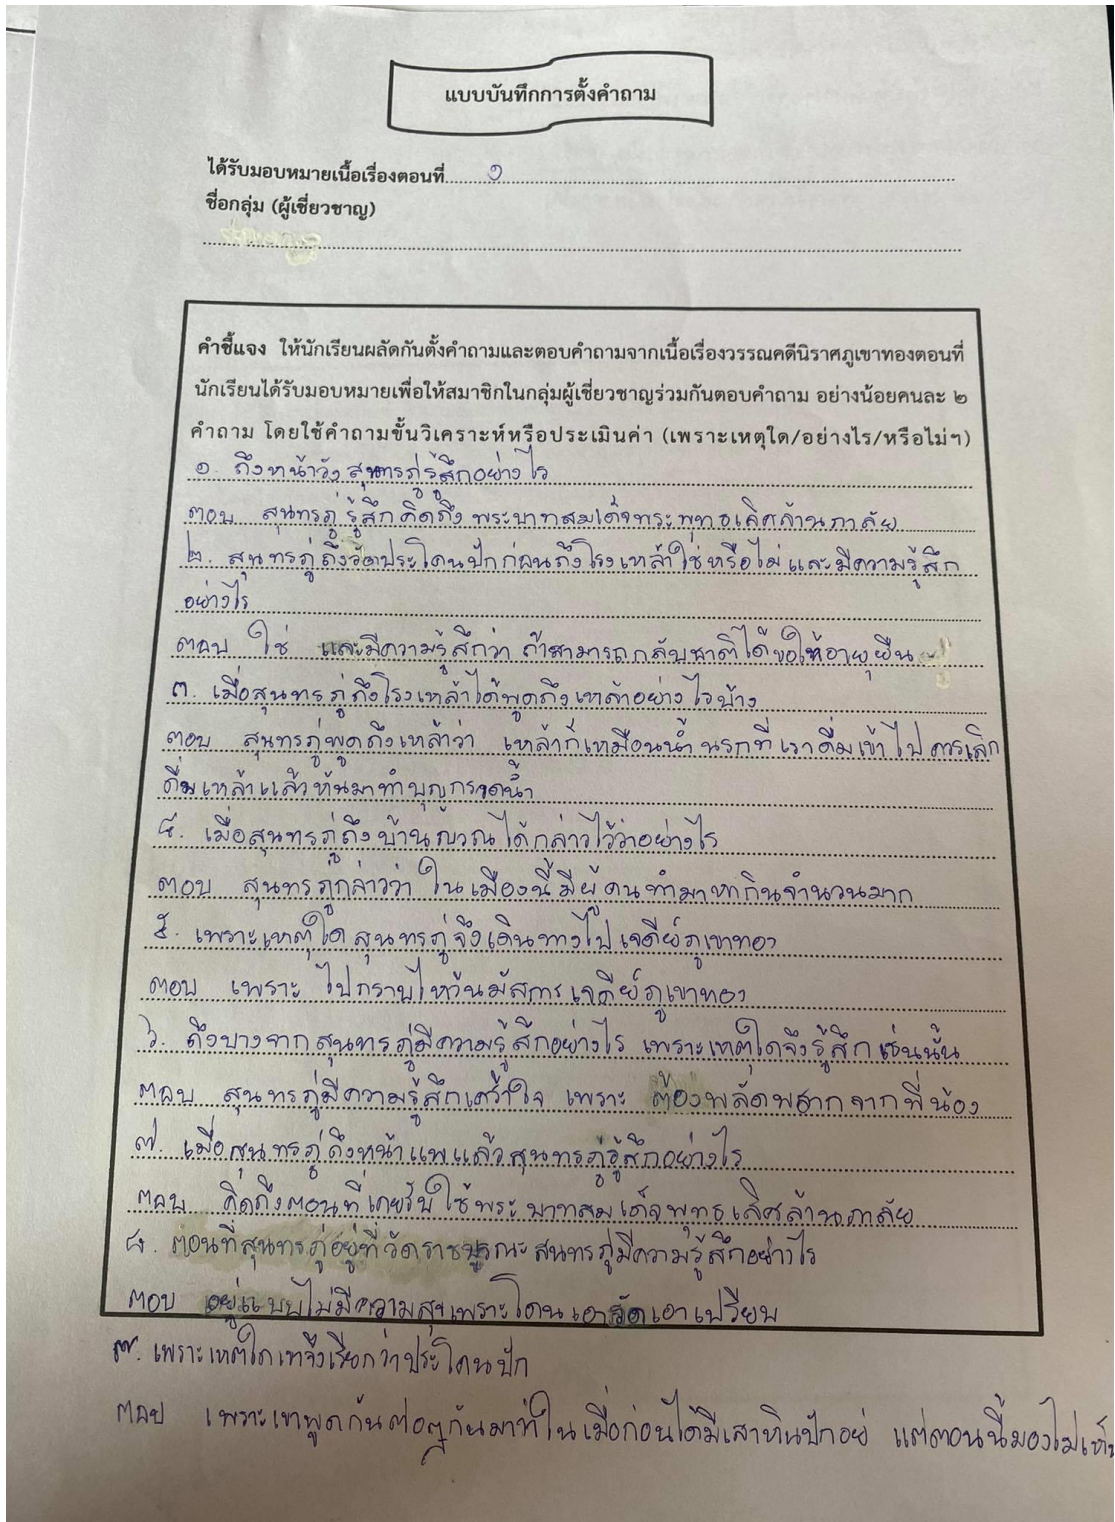 แบบบันทึกการตั้งคำถาม
ได้รับมอบหมายเนื้อเรื่องตอนที่ ๑
ชื่อกลุ่ม (ผู้เชี่ยวชาญ)
คำชี้แจง ให้นักเรียนผลัดกันตั้งคำถามและตอบคำถามจากเนื้อเรื่องวรรณคดีนิราศภูเขาทองตอนที่
นักเรียนได้รับมอบหมายเพื่อให้สมาชิกในกลุ่มผู้เชี่ยวชาญร่วมกันตอบคำถาม อย่างน้อยคนละ ๒
คำถาม โดยใช้คำถามขั้นวิเคราะห์หรือประเมินค่า (เพราะเหตุใด/อย่างไร/หรือไม่ฯ)
๑. ถึงหน้าวัง สุนทรภู่รู้สึกอย่างไร
ตอบ สุนทรภู่ รู้สึก คิดถึง พระบาทสมเด็จพระพุทธเลิศล้านภาลัย
๒. สุนทรภู่ถึงวัดประโคนปักก่อนถึงโรงเหล้าใช่หรือไม่และมีความรู้สึก
อย่างไร
ตอบ ใช่ และมีความรู้สึกว่า ถ้าสามารถกลับชาติได้ขอให้อายุยืน
๓. เมื่อสุนทรภู่ถึงโรงเหล้าได้พูดถึงเหล้าอย่างไรบ้าง
ตอบ สุนทรภู่พูดถึงเหล้าว่า เหล้าก็เหมือนน้ำนรกที่เราดื่มเข้าไป ควรเลิก
ดื่มเหล้าแล้วหันมาทำบุญกรวดน้ำ
๔. เมื่อสุนทรภู่ถึงบ้านญวณได้กล่าวไว้ว่าอย่างไร
ตอบ สุนทรภู่กล่าวว่า ในเมืองนี้มีผู้คนทำมาหากินจำนวนมาก
๕. เพราะเหตุใดสุนทรภู่จึงเดินทางไปเจดีย์ภูเขาทอง
ตอบ เพราะ ไปกราบไหว้นมัสการเจดีย์ภูเขาทอง
๖. ถึงบางจากสุนทรภู่มีความรู้สึกอย่างไร เพราะเหตุใดจึงรู้สึกเช่นนั้น
ตอบ สุนทรภู่มีความรู้สึกเศร้าใจ เพราะ ต้องพลัดพรากจากพี่น้อง
๗. เมื่อสุนทรภู่ถึงหน้าแพแล้วสุนทรภู่รู้สึกอย่างไร
ตอบ คิดถึงตอนที่เคยรับใช้พระบาทสมเด็จพุทธเลิศล้านภาลัย
๘. ตอนที่สุนทรภู่อยู่ที่วัดราชบูรณะสุนทรภู่มีความรู้สึกอย่างไร
ตอบ อยู่แบบไม่มีความสุขเพราะโดนเอารัดเอาเปรียบ
๙. เพราะเหตุใดเขาจึงเรียกว่าประโคนปัก
ตอบ เพราะเขาพูดกันต่อๆกันมาว่าในเมื่อก่อนได้มีเสาหินปักอยู่ แต่ตอนนี้มองไม่เห็น